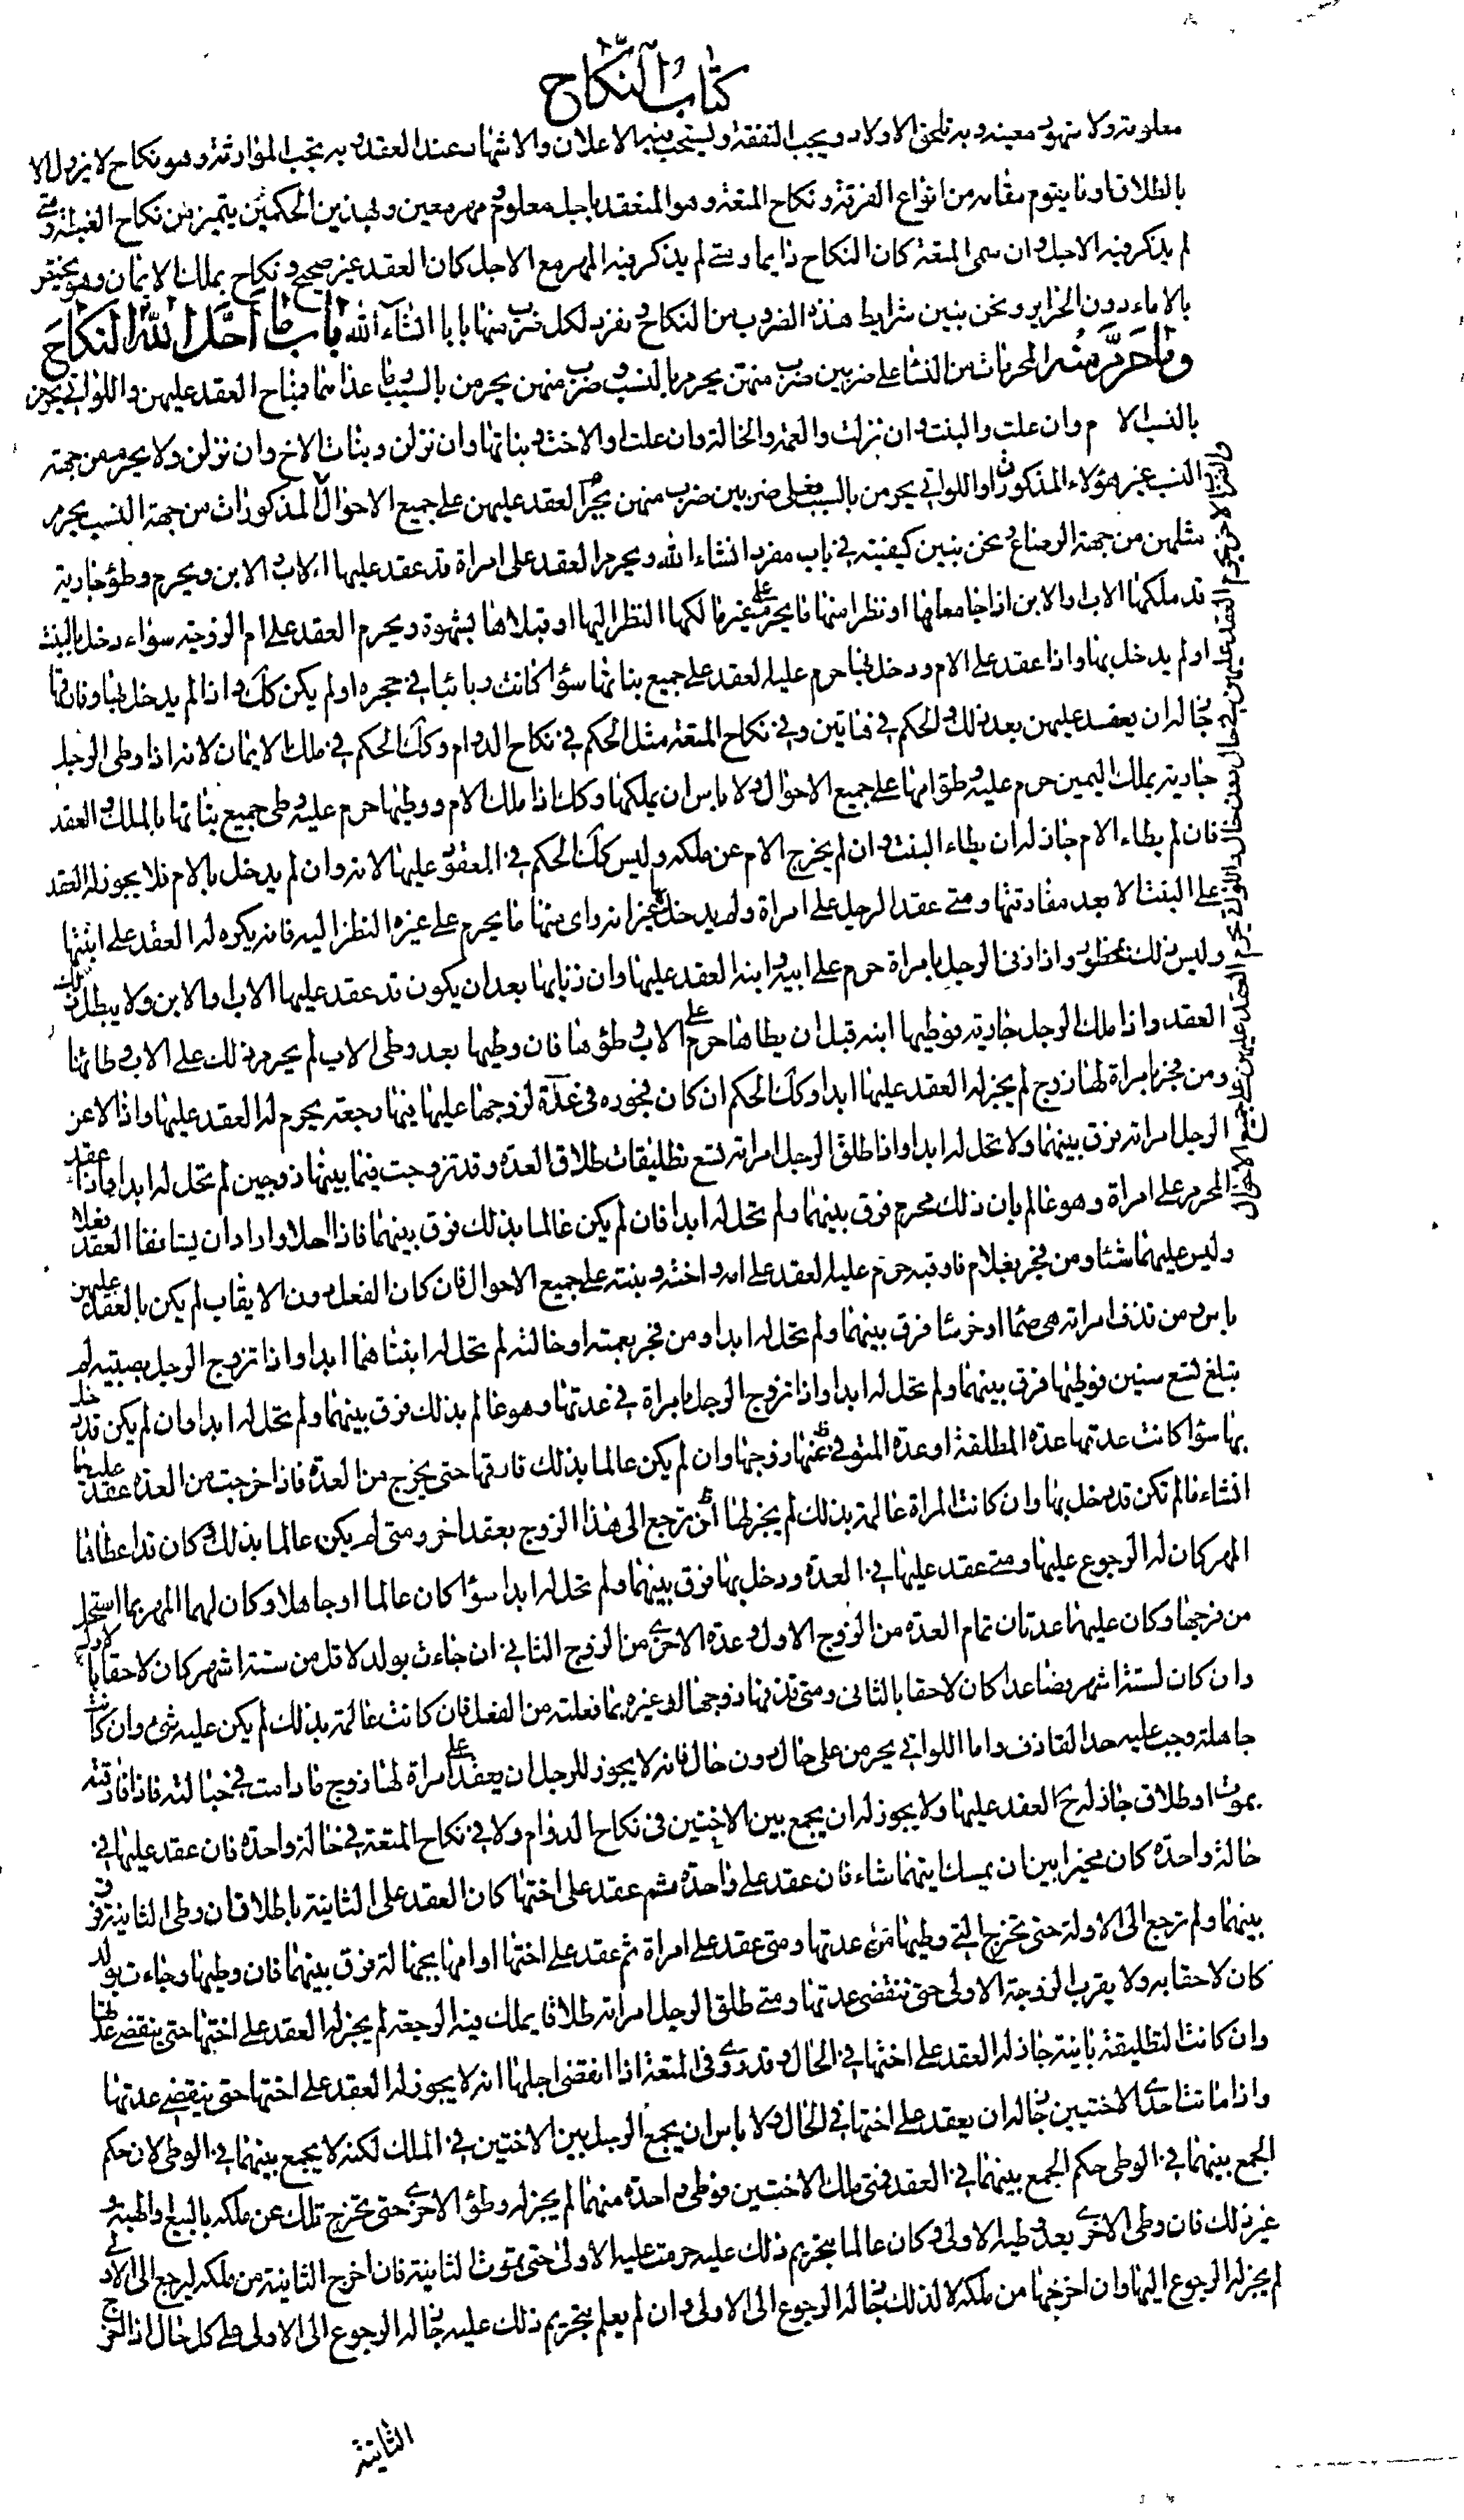 كتاب النكاح
معلومة ولا شهور معينة وبه تلحق الاولاد ويجب النفقة ويستحب فيه الاعلان والاشهاد عند العقد وبه يجب الموارثة وهو نكاح لا يزول الا
بالطلاق او ما يقوم مقامه من انواع الفرقة ونكاح المتعة وهو المنعقد باجل معلوم ومهر معين وبهذين الحكمين يتميز من نكاح الغبطة ومتى
لم يذكر فيه الاجل وان سمى المتعة كان النكاح دايما ومتى لم يذكر فيه المهر مع الاجل كان العقد غير صحيح ونكاح بملك الايمان وهو يختص
بالاماء دون الحراير ونحن نبين شرايط هذه الضروب من النكاح ونفرد لكل ضرب منها بابا انشاء الله باب ما احل الله النكاح
وما حرم منه المحرمات من النساء على ضربين ضرب منهن يحرم بالنسب وضرب منهن يحرمن بالسبب وما عداهما فمباح العقد عليهن واللواتي يحرمن
بالنسب الام وان علت والبنت وان نزلت والعمة والخالة وان علتا والاخت وبناتها وان نزلن وبنات الاخ وان نزلن ولا يحرم من جهة
النسب غير هؤلاء المذكورات واللواتي يحرمن بالسبب فعلى ضربين ضرب منهن يحرم العقد عليهن على جميع الاحوال المذكورات من جهة النسب يحرم
والضرب الاخر يحرم العقد عليهن في حال دون حال واللواتي يحرم العقد عليهن على جميع الاحوال
مثلهن من جهة الرضاع ونحن نبين كيفيته في باب مفرد انشاء الله ويحرم العقد على امراة قد عقد عليها الاب والابن ويحرم وطؤ جارية
قد ملكها الاب والابن اذا جامعاها او نظرا منها ما يحرم على غير مالكها النظر اليها او قبلاها بشهوة ويحرم العقد على ام الزوجة سواء دخل بالبنت
او لم يدخل بها واذا عقد على الام ودخل بها حرم عليه العقد على جميع بناتها سؤا كانت ربائبا في حجره او لم يكن كك واذا لم يدخل بها وفارقها
جاز له ان يعقد عليهن بعد ذلك والحكم في هاتين وفي نكاح المتعة مثل الحكم في نكاح الدوام وكك الحكم في ملك الايمان لانه اذا وطى الرجل
جارية بملك اليمين حرم عليه وطؤ امها على جميع الاحوال ولا باس ان يملكها وكك اذا ملك الام ووطيها حرم عليه وطى جميع بناتها بالملك والعقد
فان لم يطاء الام جاز له ان يطاء البنت وان لم يخرج الام عن ملكه وليس كك الحكم في المعقود عليها لانه وان لم يدخل بالام فلا يجوز له العقد
على البنت الا بعد مفارقتها ومتى عقد الرجل على امراة ولم يدخل بها غير انه راى منها ما يحرم على غيره النظر اليه فانه يكره له العقد على ابنتها
وليس ذلك بمحظور واذا زنى الرجل بامراة حرم على ابيه وابنه العقد عليها وان زنا بها بعد ان يكون قد عقد عليها الاب والابن ولا يبطل ذلك
العقد واذا ملك الرجل جارية فوطيها ابنه قبل ان يطاها حرم على الاب وطؤها فان وطيها بعد وطى الاب لم يحرم ذلك على الاب وطائها
ومن فجر بامراة لها زوج لم يجز له العقد عليها ابدا وكك الحكم ان كان فجوره في عدة لزوجها عليها فيها رجعة يحرم له العقد عليها واذا لاعن
الرجل امراته فرق بينهما ولا تحل له ابدا واذا طلق الرجل امراته تسع تطليقات طلاق العدة وقد تزوجت فيما بينها زوجين لم تحل له ابدا واذا عقد
المحرم على امراة وهو عالم بان ذلك محرم فرق بينهما ولم تحل له ابدا فان لم يكن عالما بذلك فرق بينهما فاذا احلا وارادا ان يستانفا العقد فعلا
وليس عليهما شئ ومن فجر بغلام فاوقبه حرم عليه العقد على امه واخته وبنته على جميع الاحوال فان كان الفعل دون الايقاب لم يكن بالعقد عليهن
باس ومن قذف امراته وهي صما او خرسا فرق بينهما ولم تحل له ابدا ومن فجر بعمته او خالته لم تحل له ابنتاهما ابدا واذا تزوج الرجل بصبية لم
تبلغ تسع سنين فوطيها فرق بينهما ولم تحل له ابدا واذا تزوج الرجل بامراة في عدتها وهو عالم بذلك فرق بينهما ولم تحل له ابدا وان لم يكن قد دخل
بها سؤا كانت عدتها عدة المطلقة او عدة المتوفى عنها زوجها وان لم يكن عالما بذلك فارقها حتى يخرج من العدة فاذا خرجت من العدة عقد عليها
انشاء ما لم تكن قد دخل بها وان كانت المراة عالمة بذلك لم يجز لها ان ترجع الى هذا الزوج بعقد اخر ومتى لم يكن عالما بذلك وكان قد اعطاها
المهر كان له الرجوع عليها ومتى عقد عليها في العدة ودخل بها فرق بينهما ولم تحل له ابدا سؤا كان عالما او جاهلا وكان لها المهر بما استحل
من فرجها وكان عليها عدتان تمام العدة من الزوج الاول وعدة الاخرى من الزوج الثاني ان جاءت بولد لاقل من ستة اشهر كان لاحقا بالاول
وان كان لستة اشهر فصاعدا كان لاحقا بالثاني ومتى قذفها زوجها او غيره بما فعلته من الفعل فان كانت عالمة بذلك لم يكن عليه شئ وان كانت
جاهلة وجب عليه حد القاذف واما اللواتي يحرمن على حال دون حال فانه لا يجوز للرجل ان يعقد على امراة لها زوج ما دامت في حبالته فاذا فارقته
بموت او طلاق جاز له ح العقد عليها ولا يجوز له ان يجمع بين الاختين في نكاح الدوام ولا في نكاح المتعة في حالة واحدة فان عقد عليها في
حالة واحدة كان مخيرا بين ان يمسك ايتهما شاء فان عقد على واحدة ثم عقد على اختها كان العقد على الثانية باطلا فان وطى الثانية فرق
بينهما ولم ترجع الى الاولة حتى تخرج التي وطيها من عدتها ومتى عقد على امراة ثم عقد على اختها او امها بجهالة فرق بينهما فان وطيها وجاءت بولد
كان لاحقا به ولا يقرب الزوجة الاولى حتى تنقضي عدتها ومتى طلق الرجل امراته طلاقا يملك فيه الرجعة لم يجز له العقد على اختها حتى ينقضي عدتها
وان كانت التطليقة باينة جاز له العقد على اختها في الحال وقد روى في المتعة اذا انقضى اجلها انه لا يجوز له العقد على اختها حتى ينقضي عدتها
واذا ماتت احدى الاختين جاز له ان يعقد على اختها في الحال ولا باس ان يجمع الرجل بين الاختين في الملك لكنه لا يجمع بينهما في الوطى لان حكم
الجمع بينهما في الوطى حكم الجمع بينهما في العقد فمتى ملك الاختين فوطى واحدة منهما لم يجز له وطؤ الاخرى حتى تخرج تلك عن ملكه بالبيع والهبة او
غير ذلك فان وطى الاخرى بعد وطيه الاولى وكان عالما بتحريم ذلك عليه حرمت عليه الاولى حتى تموت الثانية فان اخرج الثانية من ملكه ليرجع الى الاولى
لم يجز له الرجوع اليها وان اخرجها من ملكه لا لذلك جاز له الرجوع الى الاولى وان لم يعلم بتحريم ذلك عليه جاز له الرجوع الى الاولى على كل حال اذا اخرج
الثانية